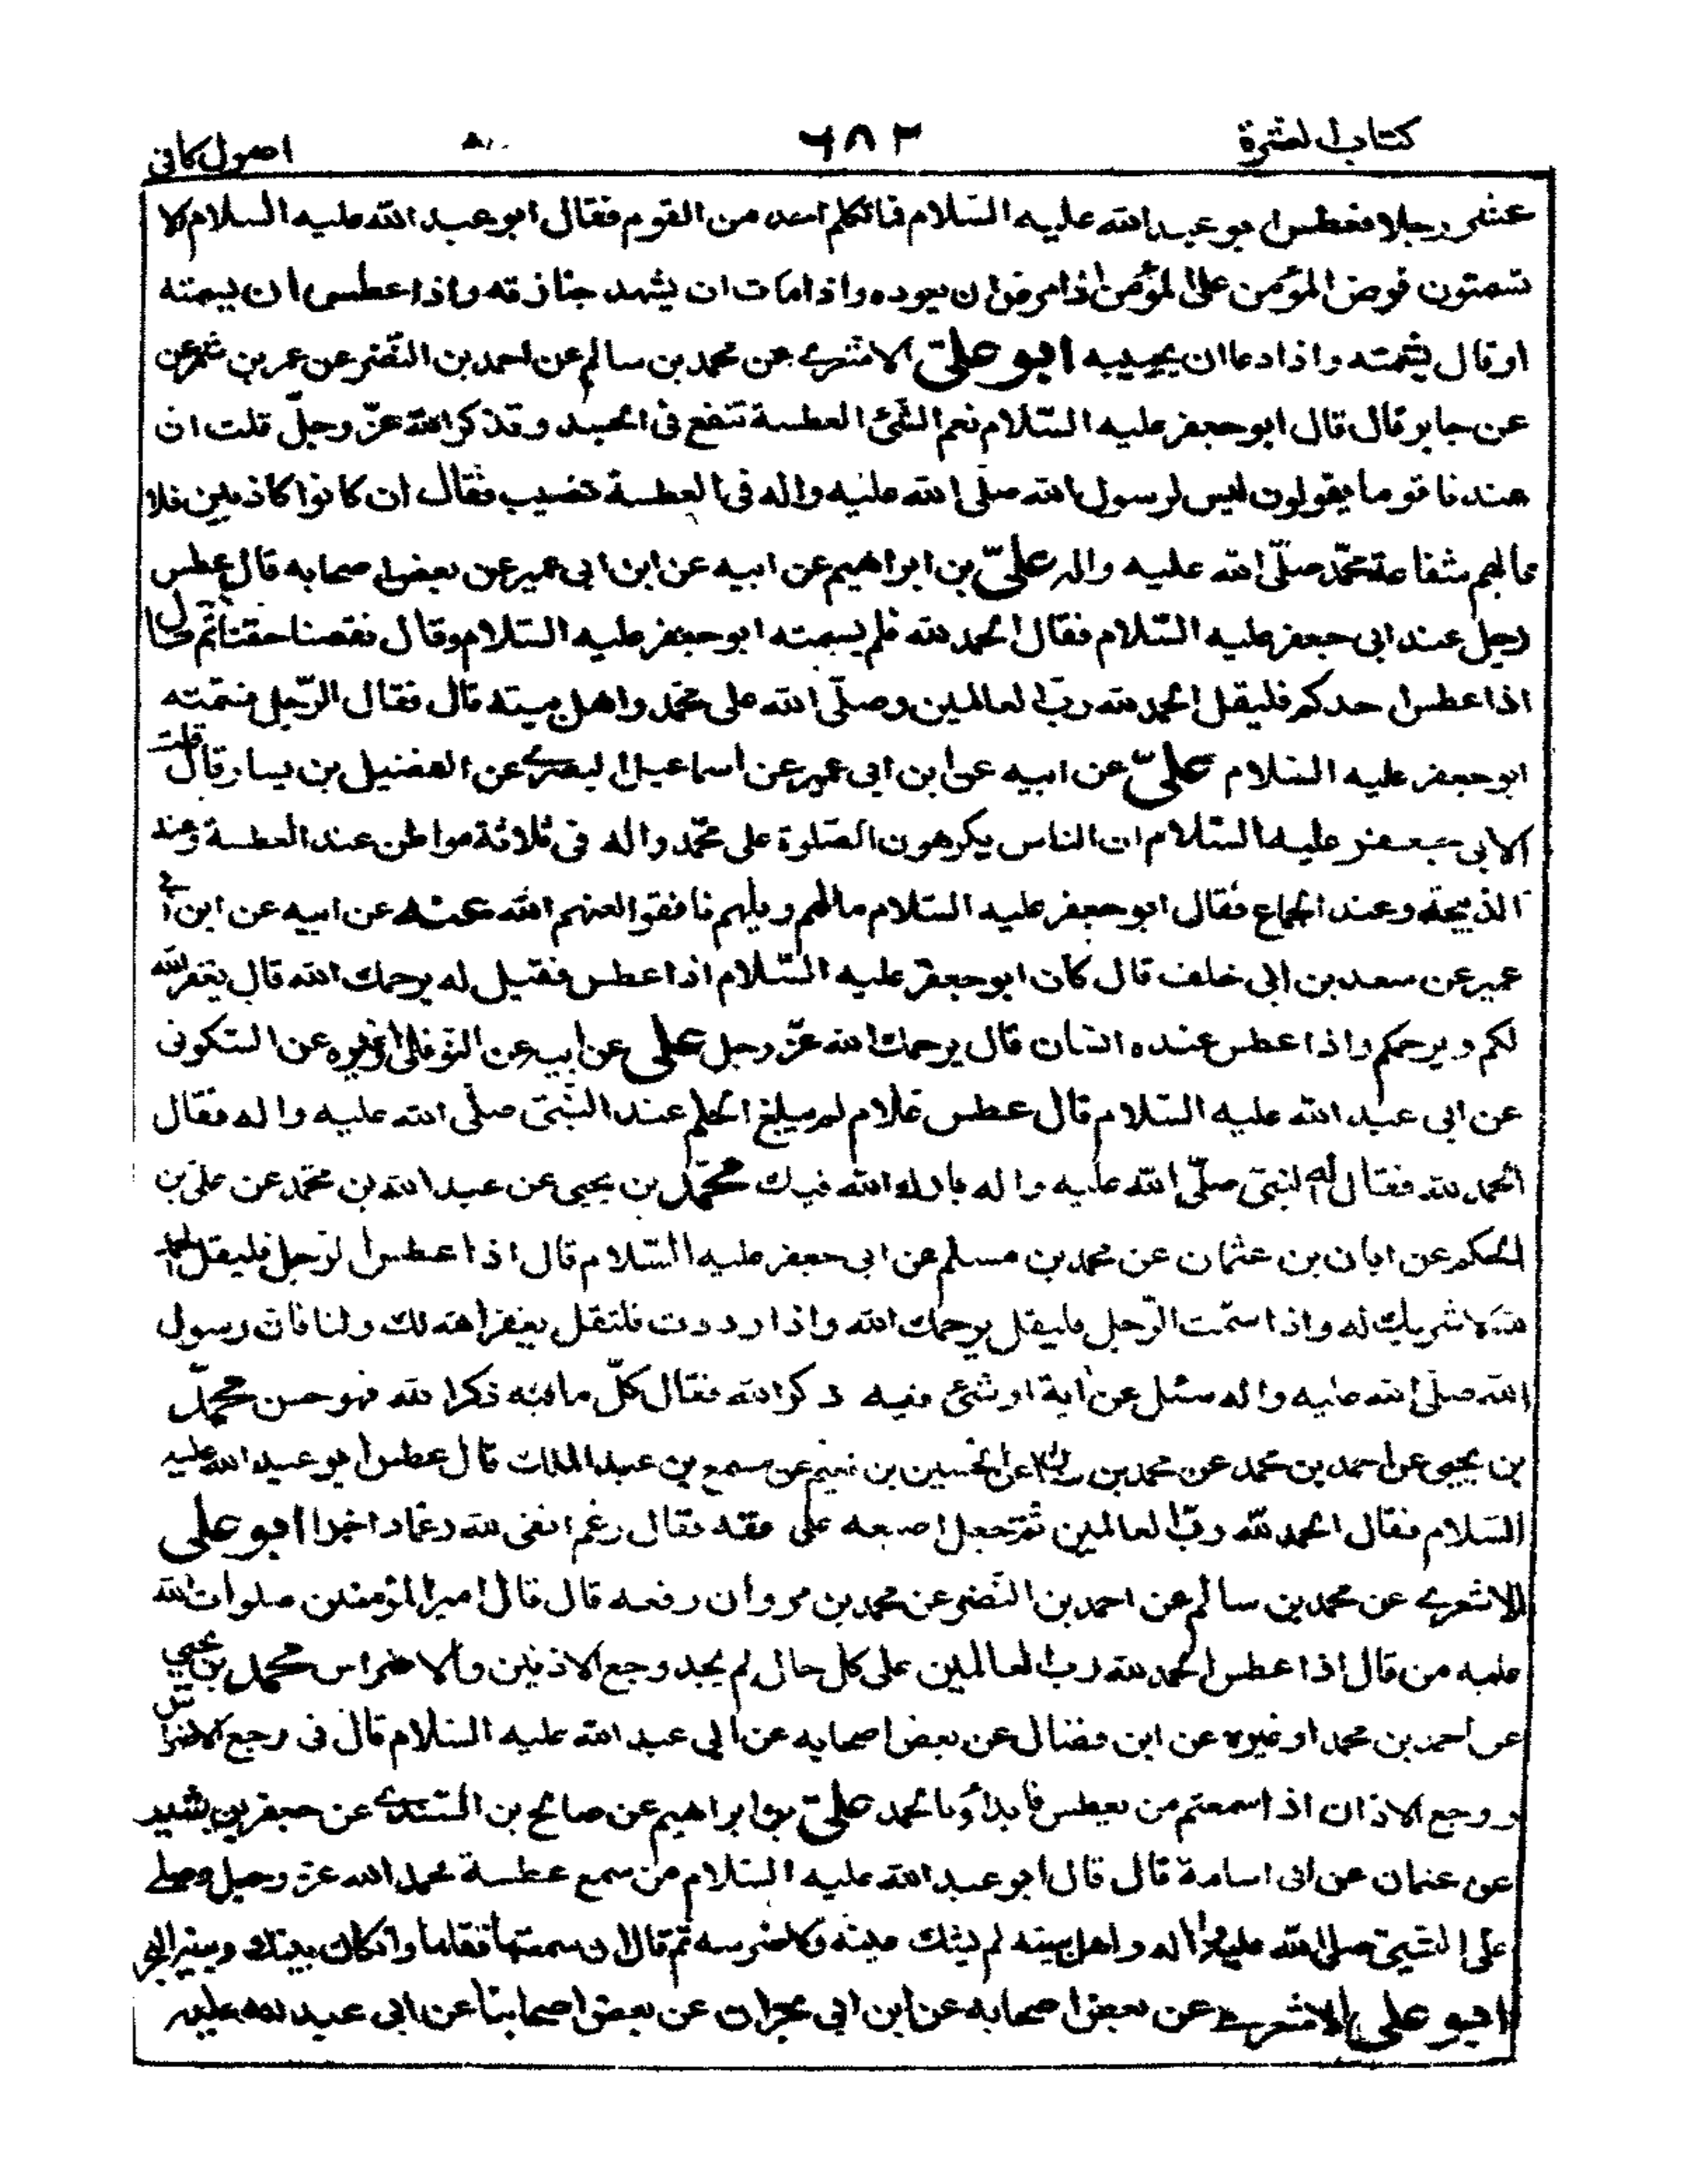 كتاب العشرة ٦٨٢ اصول كافى
عشر رجلا فعطس ابو عبد الله عليه السّلام فما تكلم احد من القوم فقال ابو عبد الله عليه السلام الا
تسمتون فرض المؤمن على المؤمن اذا مرض ان يعوده واذا مات ان يشهد جنازته واذا عطس ان يسمته
او قال يشمته واذا دعا ان يجيبه ابو علىّ الاشعرى عن محمد بن سالم عن احمد بن النّضر عن عمر بن شمر عن
عن جابر قال قال ابو جعفر عليه السّلام نعم الشّئ العطسة تنفع فى الجسد وتذكر الله عزّ وجلّ قلت ان
عندنا قوما يقولون ليس لرسول الله صلّى الله عليه واله فى العطسة نصيب فقال ان كانوا كاذبين فلا
نالهم شفاعة محمّد صلّى الله عليه واله علىّ بن ابراهيم عن ابيه عن ابن ابى عمير عن بعض اصحابه قال عطس
رجل عند ابى جعفر عليه السّلام فقال الحمد لله فلم يسمته ابو جعفر عليه السّلام وقال نقصنا حقنا ثم قال
اذا عطس احدكم فليقل الحمد لله ربّ العالمين وصلّى الله على محمّد واهل بيته قال فقال الرّجل فسمّته
ابو جعفر عليه السّلام علىّ عن ابيه عن ابن ابى عمير عن اسماعيل البصرى عن الفضيل بن يسار قال قلت
لابى جعفر عليه السّلام ان الناس يكرهون الصّلوة على محمّد واله فى ثلاثة مواطن عند العطسة وعند
الذبيحة وعند الجماع فقال ابو جعفر عليه السّلام مالهم ويلهم نافقوا لعنهم الله عنه عن ابيه عن ابن ابى
عمير عن سعد بن ابى خلف قال كان ابو جعفر عليه السّلام اذا عطس فقيل له يرحمك الله قال يغفر الله
لكم ويرحمكم واذا عطس عنده انسان قال يرحمك الله عزّ وجل على عن ابيه عن النّوفلى او غيره عن السّكونى
عن ابى عبد الله عليه السّلام قال عطس غلام لم يبلغ الحلم عند النّبىّ صلّى الله عليه واله فقال
الحمد لله فقال له النبىّ صلّى الله عليه واله بارك الله فيك محمّد بن يحيى عن عبد الله بن محمّد عن علىّ بن
الحكم عن ابان بن عثمان عن محمد بن مسلم عن ابى جعفر عليه السّلام قال اذا عطس الرّجل فليقل الحمد
لله لا شريك له واذا سمّت الرّجل فليقل يرحمك الله واذا رددت فلتقل يغفر الله لك ولنا فان رسول
الله صلّى الله عليه واله سئل عن اية او شئ فيه ذكر الله فقال كلّ ما فيه ذكر الله فهو حسن محمّد
بن يحيى عن احمد بن محمد عن محمد بن سنان عن الحسين بن نعيم عن مسمع بن عبد الملك قال عطس ابو عبد الله عليه
السّلام فقال الحمد لله ربّ العالمين ثمّ جعل اصبعه على انفه فقال رغم انفى لله رغما داخرا ابو على
الاشعرى عن محمد بن سالم عن احمد بن النّضر عن محمد بن مروان رفعه قال قال امير المؤمنين صلوات الله
عليه من قال اذا عطس الحمد لله رب العالمين على كل حال لم يجد وجع الاذنين والاضراس محمد بن يحيى
عن احمد بن محمد او غيره عن ابن فضال عن بعض اصحابه عن ابى عبد الله عليه السّلام قال فى وجع الاضراس
ووجع الاذان اذا سمعتم من يعطس فابدأوه بالحمد علىّ بن ابراهيم عن صالح بن السّندى عن جعفر بن بشير
عن عثمان عن ابى اسامة قال قال ابو عبد الله عليه السّلام من سمع عطسة فحمد الله عز وجل وصلى
على النّبىّ صلى الله عليه واله واهل بيته لم يشتك عينه ولا ضرسه ثم قال ان سمعتها فقلها وان كان بينك وبينه البحر
ابو على الاشعرى عن بعض اصحابه عن ابن ابى نجران عن بعض اصحابنا عن ابى عبد الله عليه